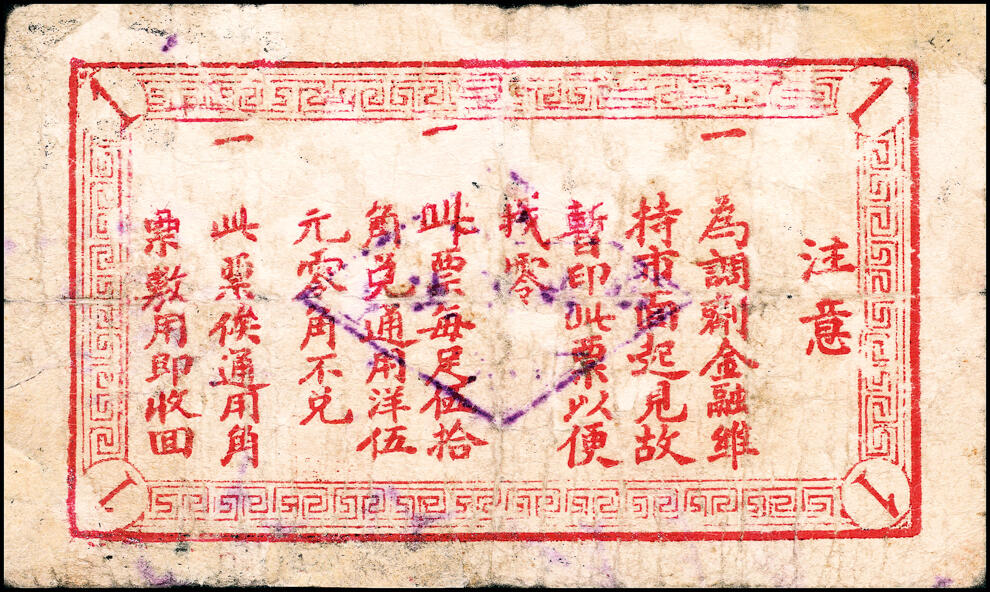 1
1
注意
一 為調劑金融維
持市面起見故
暫印此票以便
找零
一 此票每足伍拾
角兑通用洋伍
元零角不兑
一 此票俟通用角
票敷用即收回
1
1